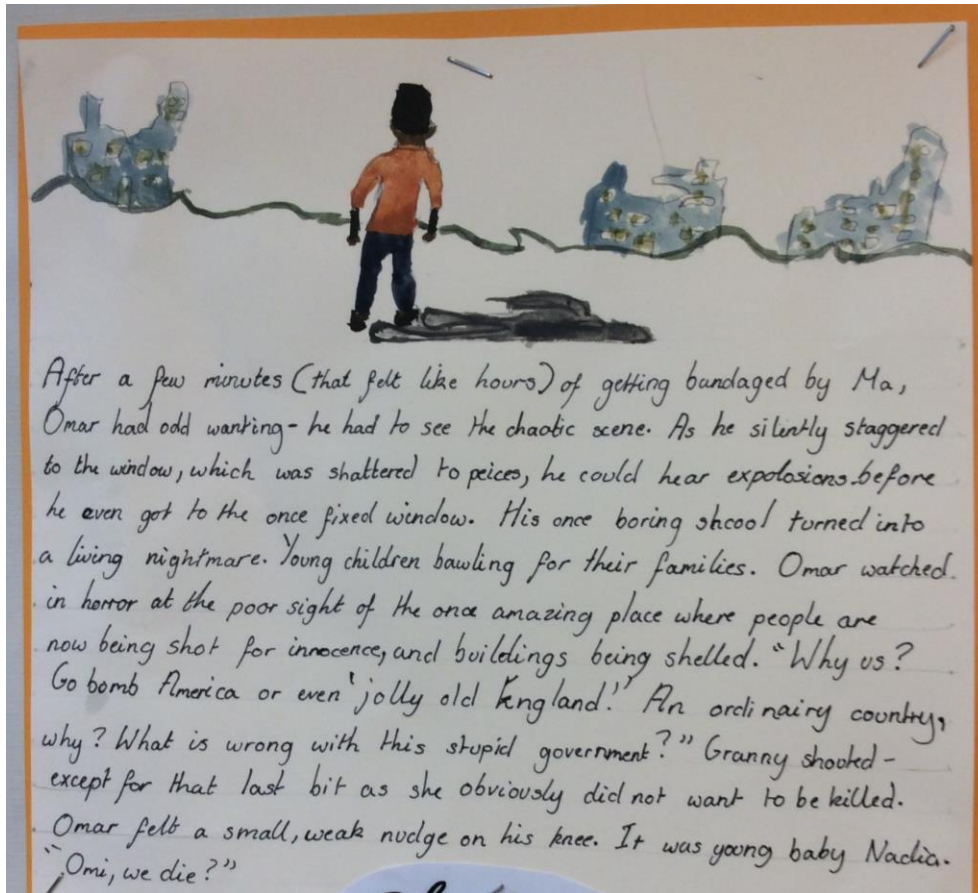 After a few minutes (that felt like hours) of getting bandaged by Ma,
Omar had odd wanting - he had to see the chaotic scene. As he silently staggered
to the window, which was shattered to peices, he could hear expolosions before
he even got to the once fixed window. His once boring shcool turned into
a living nightmare. Young children bawling for their families. Omar watched
in horror at the poor sight of the once amazing place where people are
now being shot for innocence, and buildings being shelled. "Why us?
Go bomb America or even 'jolly old England!' An ordinairy country,
why? What is wrong with this stupid government?" Granny shooted -
except for that last bit as she obviously did not want to be killed.
Omar felt a small, weak nudge on his knee. It was young baby Nadia.
"Omi, we die?"